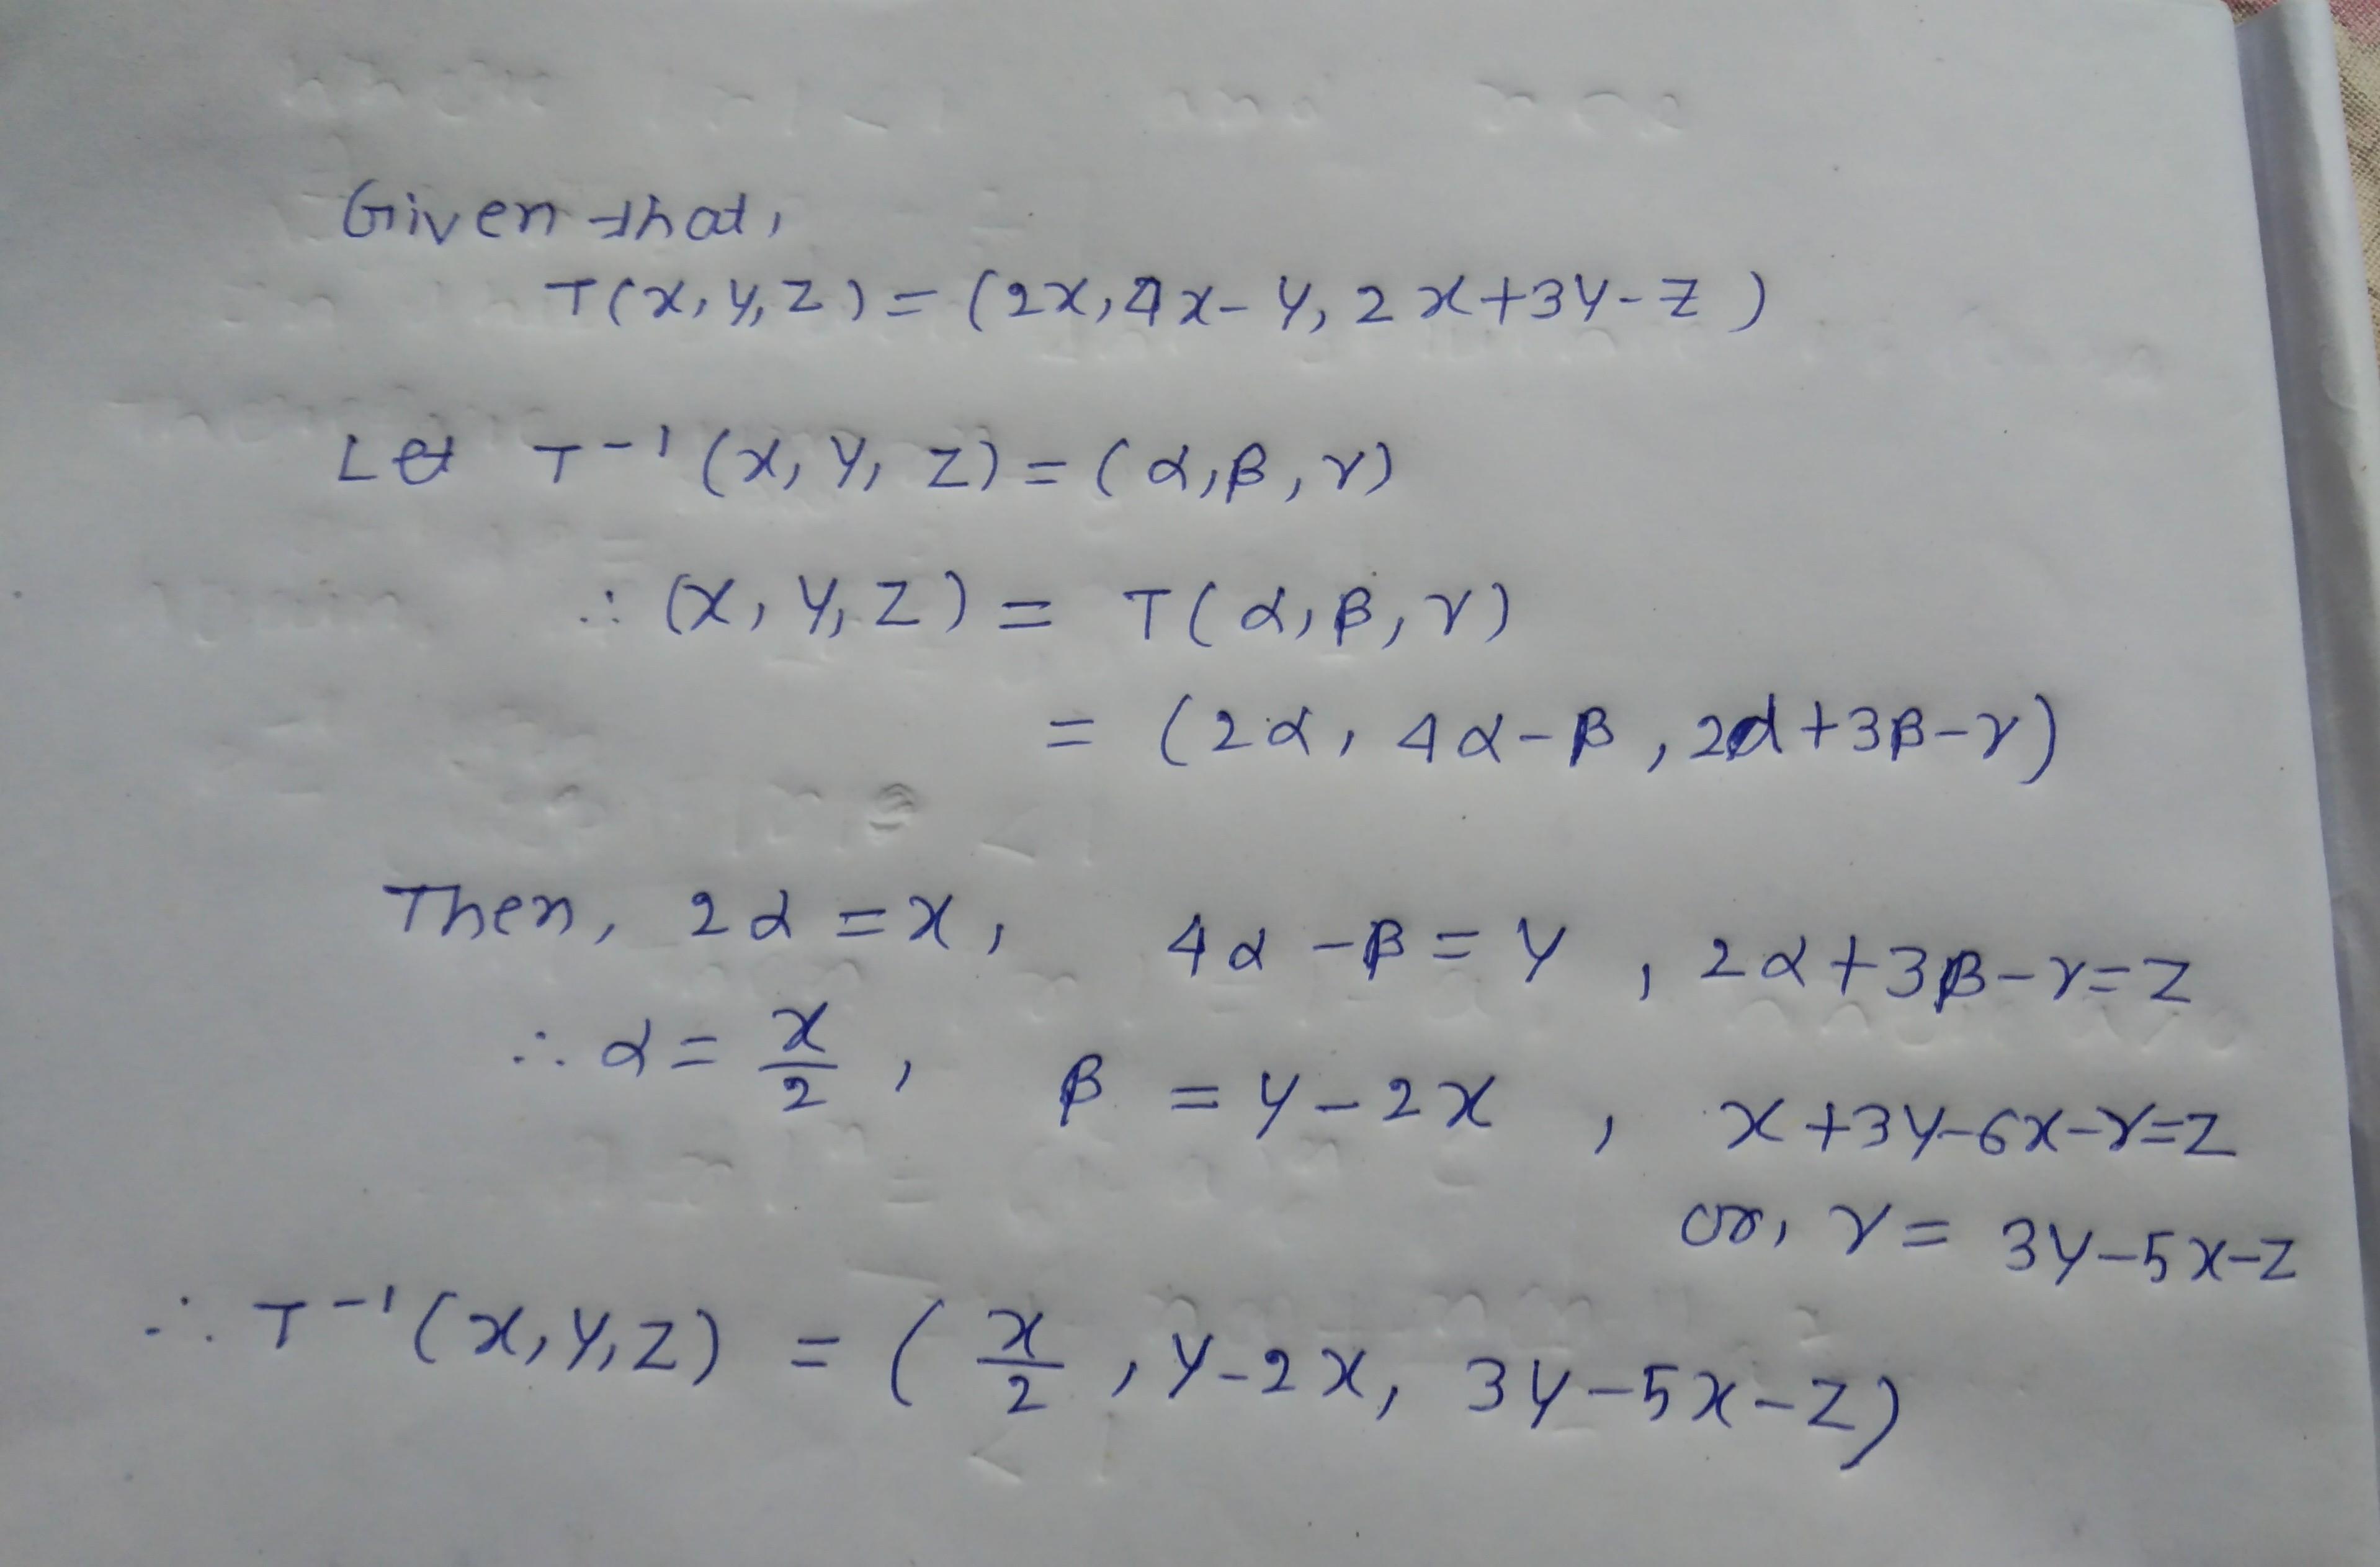 Given that,
T(x, y, z) = (2x, 4x - y, 2x + 3y - z)
Let T⁻¹(x, y, z) = (α, β, γ)
∴ (x, y, z) = T(α, β, γ)
= (2α, 4α - β, 2α + 3β - γ)
Then, 2α = x, 4α - β = y, 2α + 3β - γ = z
∴ α = x/2, β = y - 2x, x + 3y - 6x - γ = z
or, γ = 3y - 5x - z
∴ T⁻¹(x, y, z) = (x/2, y - 2x, 3y - 5x - z)